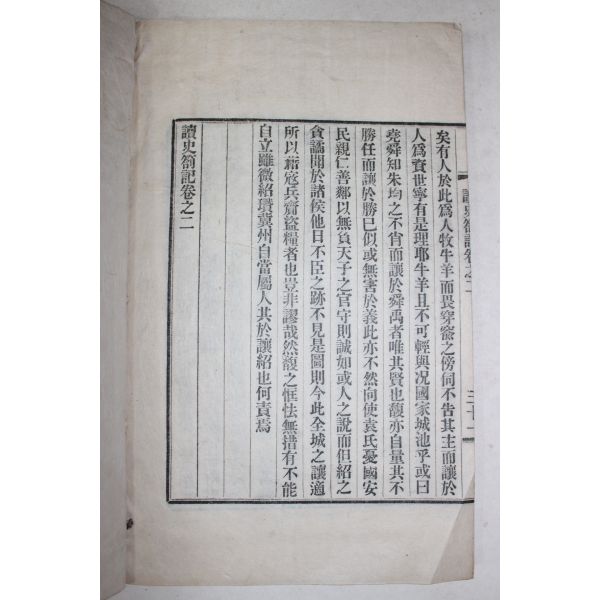 讀史劄記卷之二
三十一
矣有人於此爲人牧牛羊而畏穿窬之傍伺不告其主而讓於
人爲賁世寧有是理耶牛羊且不可輕與况國家城池乎或曰
堯舜知朱均之不肖而讓於舜禹者唯其賢也馥亦自量其不
勝任而讓於勝已似或無害於義此亦不然向使袁氏憂國安
民親仁善鄰以無負天子之官守則誠如或人之說而但紹之
貪譎聞於諸侯他日不臣之跡不見是圖則今此全城之讓適
所以藉寇兵齎盜糧者也豈非謬哉然馥之恇怯無措有不能
自立雖微紹瓚冀州自當屬人其於讓紹也何責焉
讀史劄記卷之二